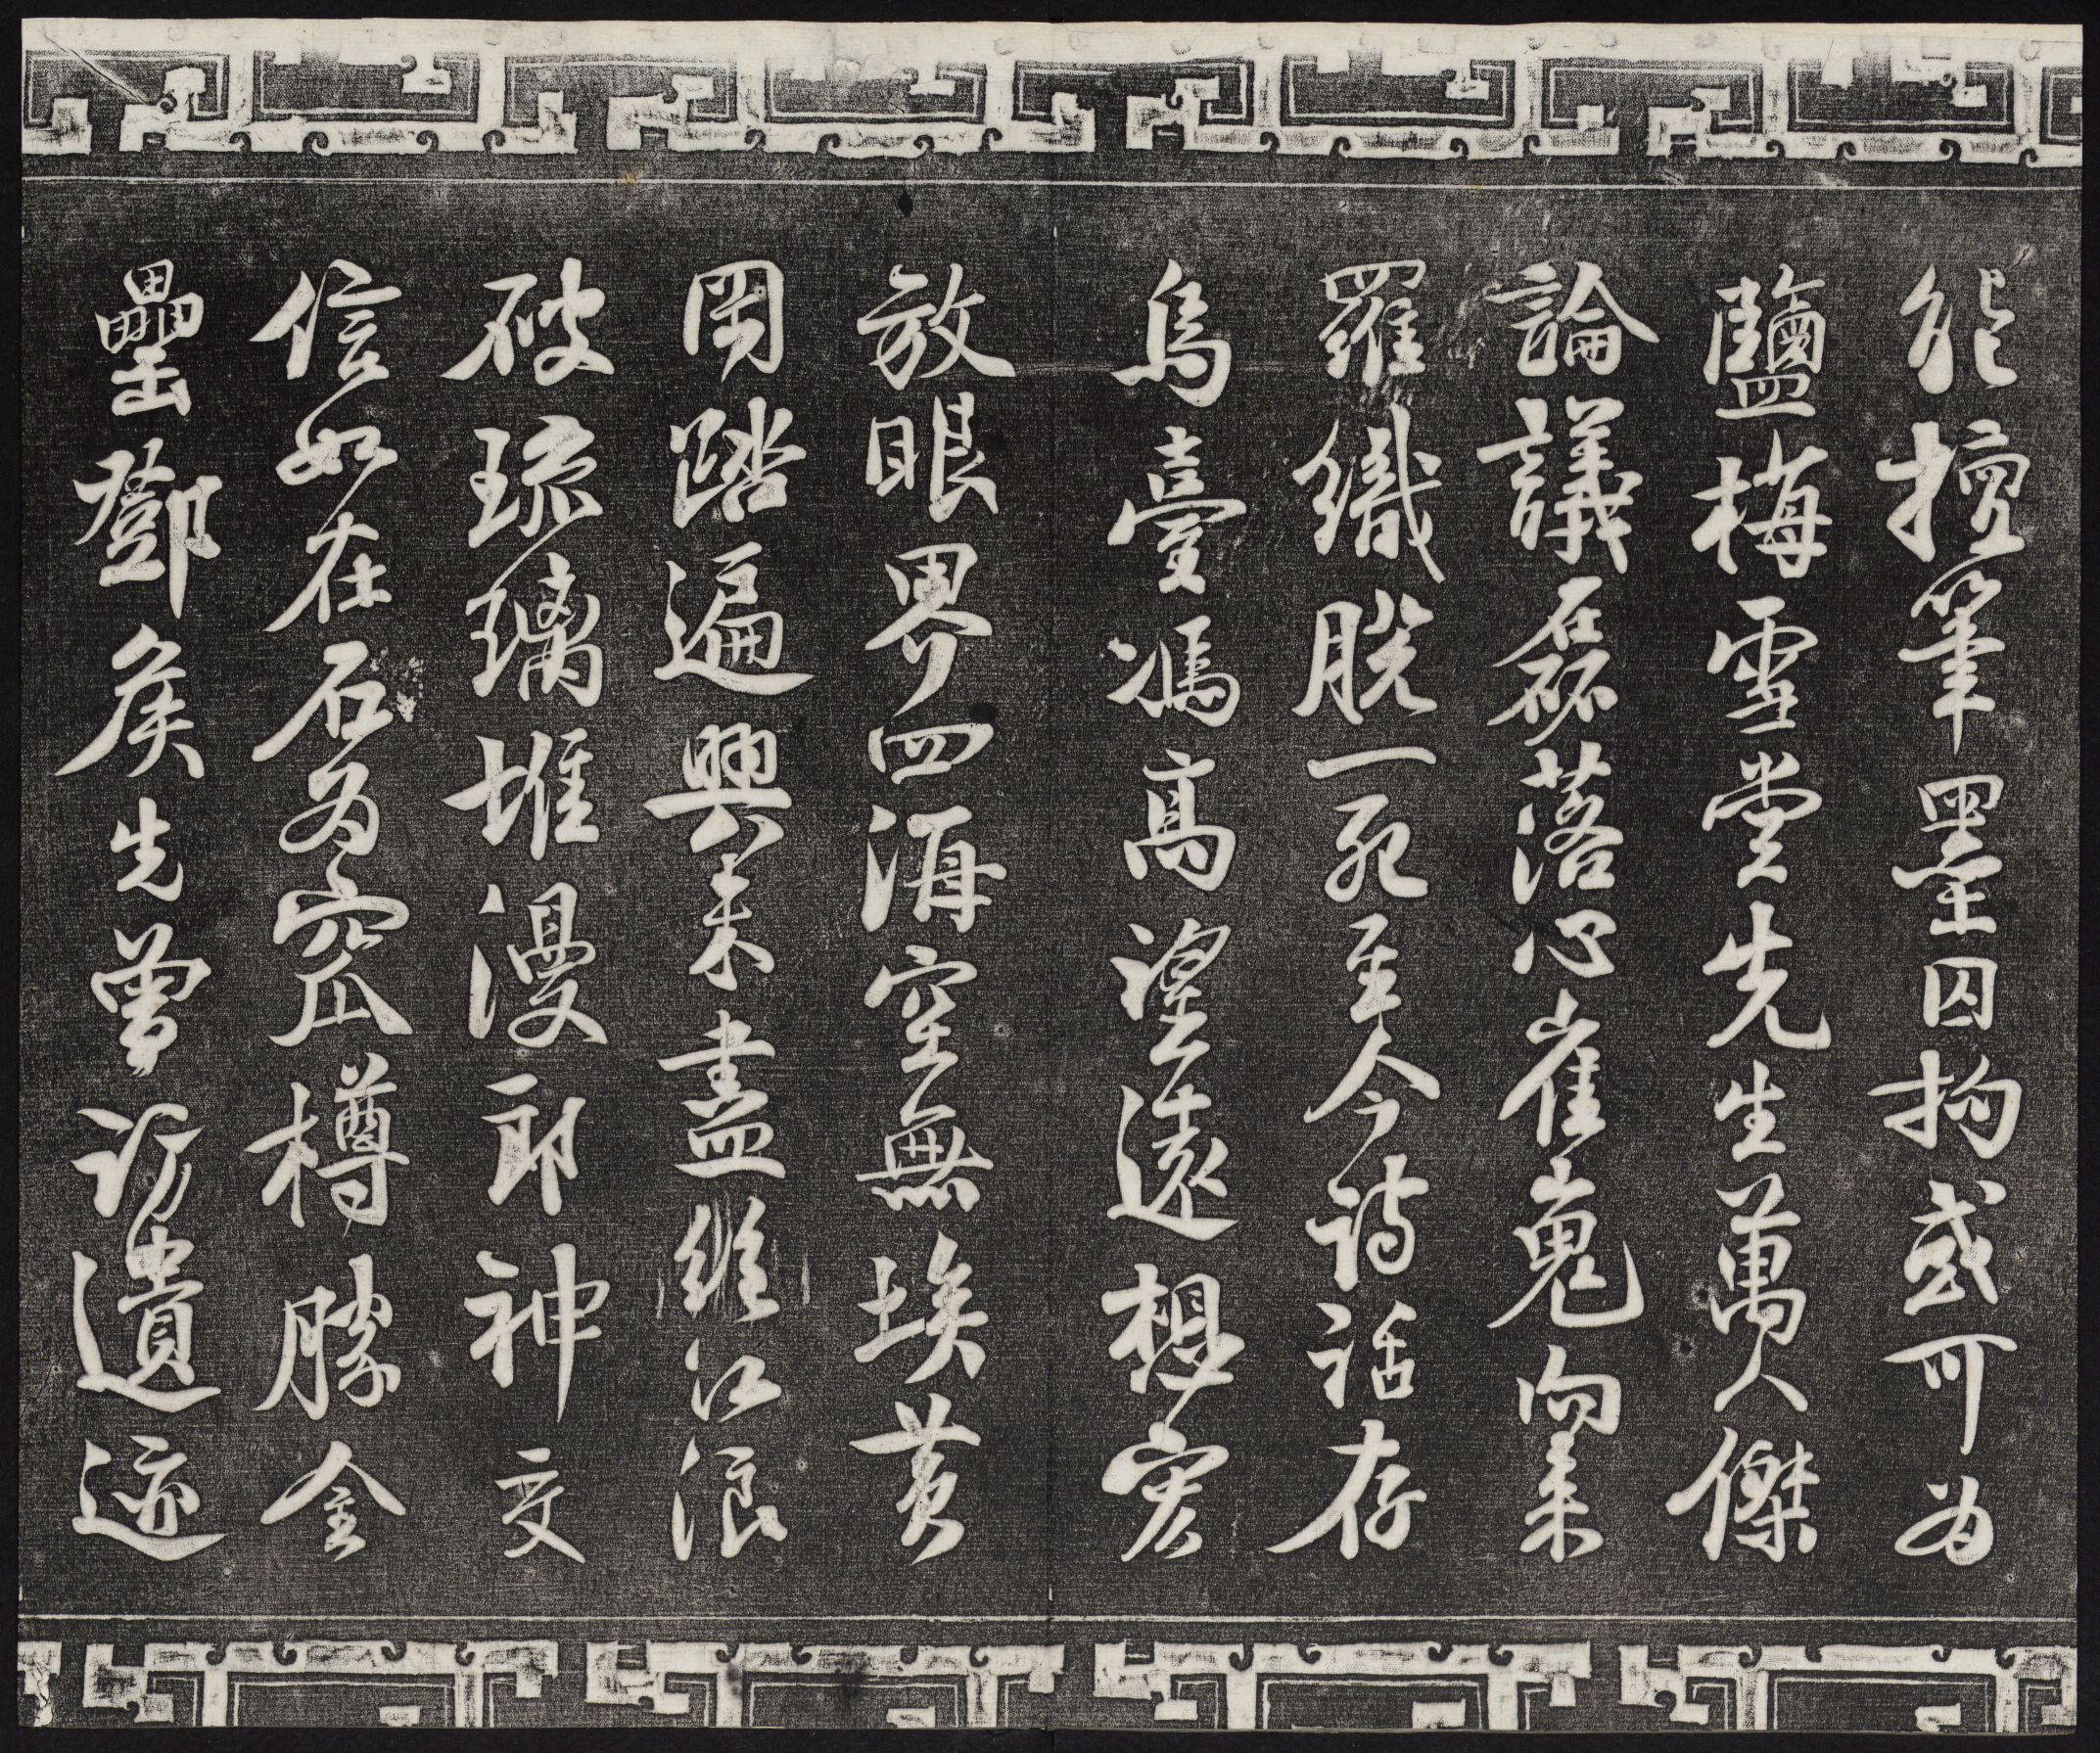 能擅筆墨囚拘或可為
鹽梅雪堂先生萬人傑
論議磊落心崔嵬向來
羅織脫一死至今詩話存
烏臺馮高望遠想宏
放眼界四海空無埃黃
岡踏遍興未盡繼江浪
破琉璃堆漫郎神交
信如在石為窊樽勝金
罍鄧侯先曾訪遺迹